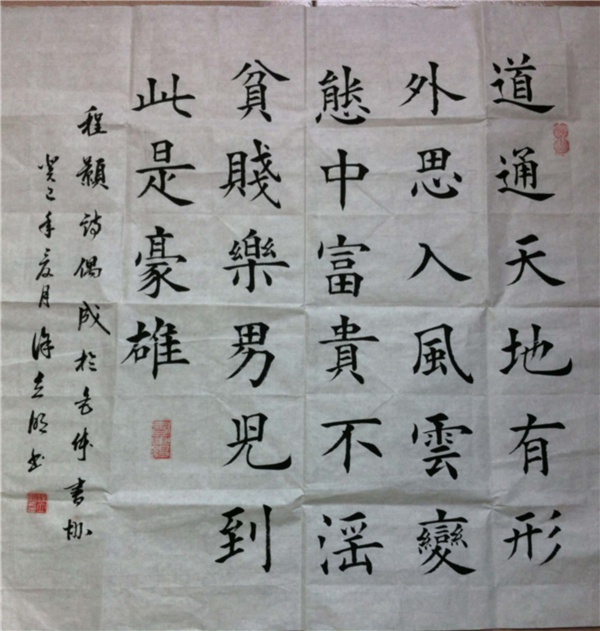 道通天地有形
外思入風雲變
態中富貴不滛
貧賤樂男兒到
此是豪雄
程顥詩偶成於
書
癸巳年夏月